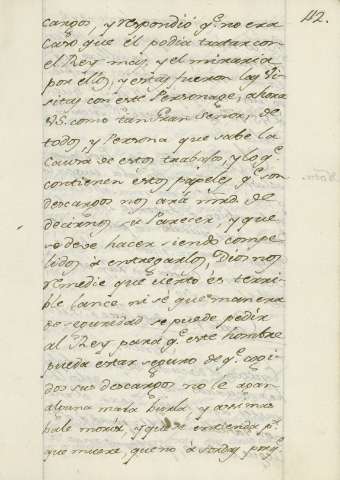 112.
cargos, y respondió q.e no era
caso que él podia tratar con
el Rey mas, y el miraria
por ellos, y estas fueron las Vi-
sitas con este Personage, ahora
VS. como tan Gran Señor, de
todos, y Persona que sabe la
Causa de estos trabajos, y lo q.e
contienen estos papeles q.e son
descargos nos ará mrd. de
decirnos su Parecer, y que
se deve hacer siendo compe-
lidos á entregarlos, Dios nos
remedie que cierto és terri-
ble lance ni sé que manera
de seguridad se puede pedir
al Rey para q.e este hombre
pueda estar seguro de q.e cogi-
dos sus descargos no le agan
alguna mala burla, y assi mas
bale moria, y que se entienda p.r
que muere, que no á sordas porq.e